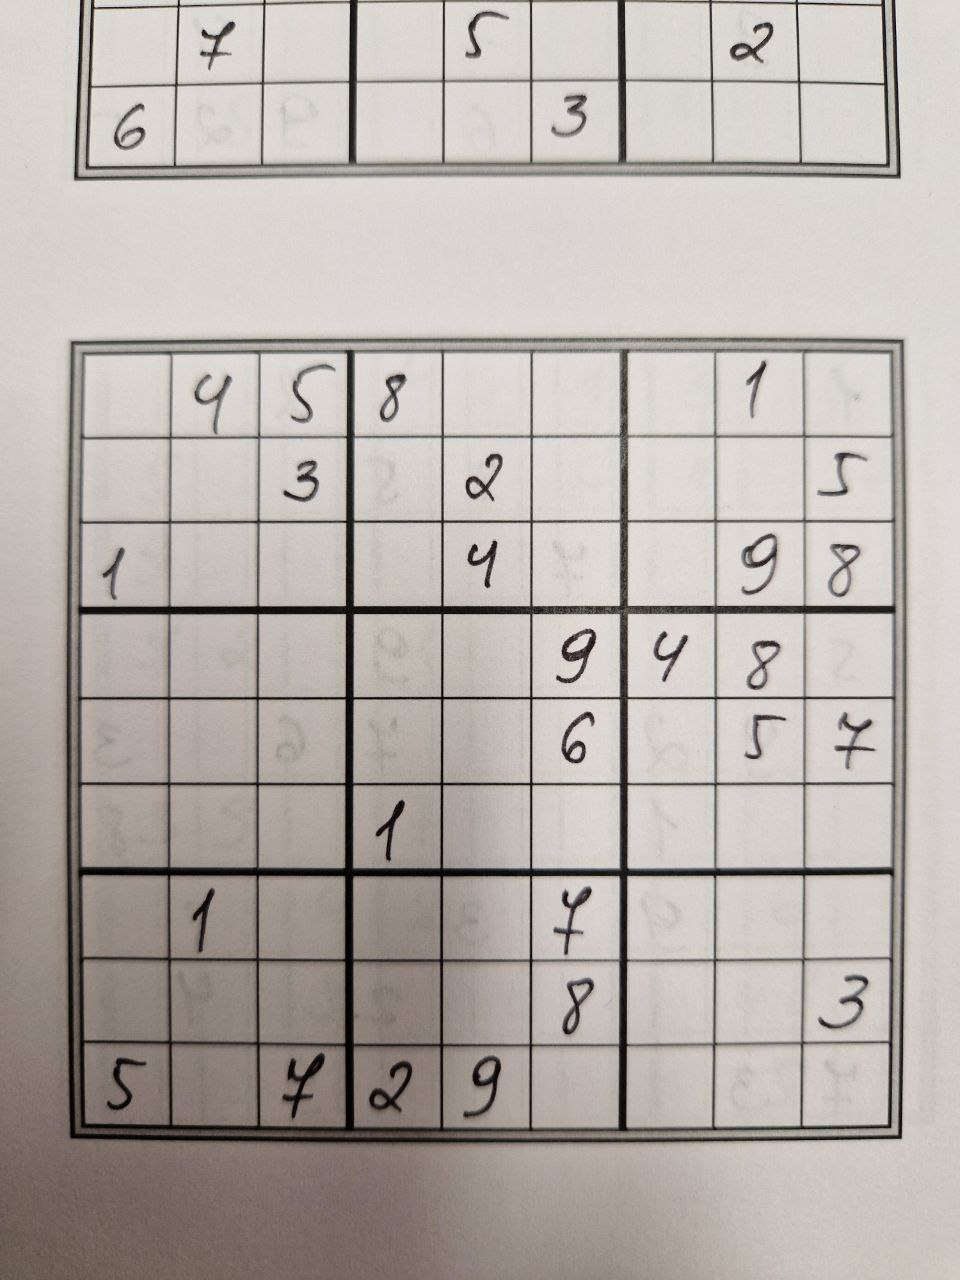 7 5 2
6 3
4 5 8 1
3 2 5
1 4 9 8
9 4 8
6 5 7
1
1 7
8 3
5 7 2 9